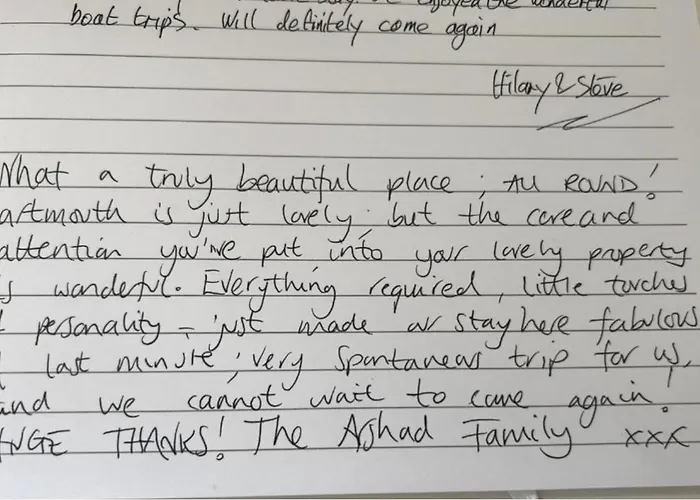 enjoyed the wonderful
boat trips. Will definitely come again
Hilary & Steve
What a truly beautiful place; ALL ROUND!
artmouth is just lovely; but the care and
attention you've put into your lovely property
is wonderful. Everything required, little touches
personality - just made our stay here fabulous
last minute, very spontaneous trip for us,
and we cannot wait to come again!
HUGE THANKS! The Arshad Family xxx